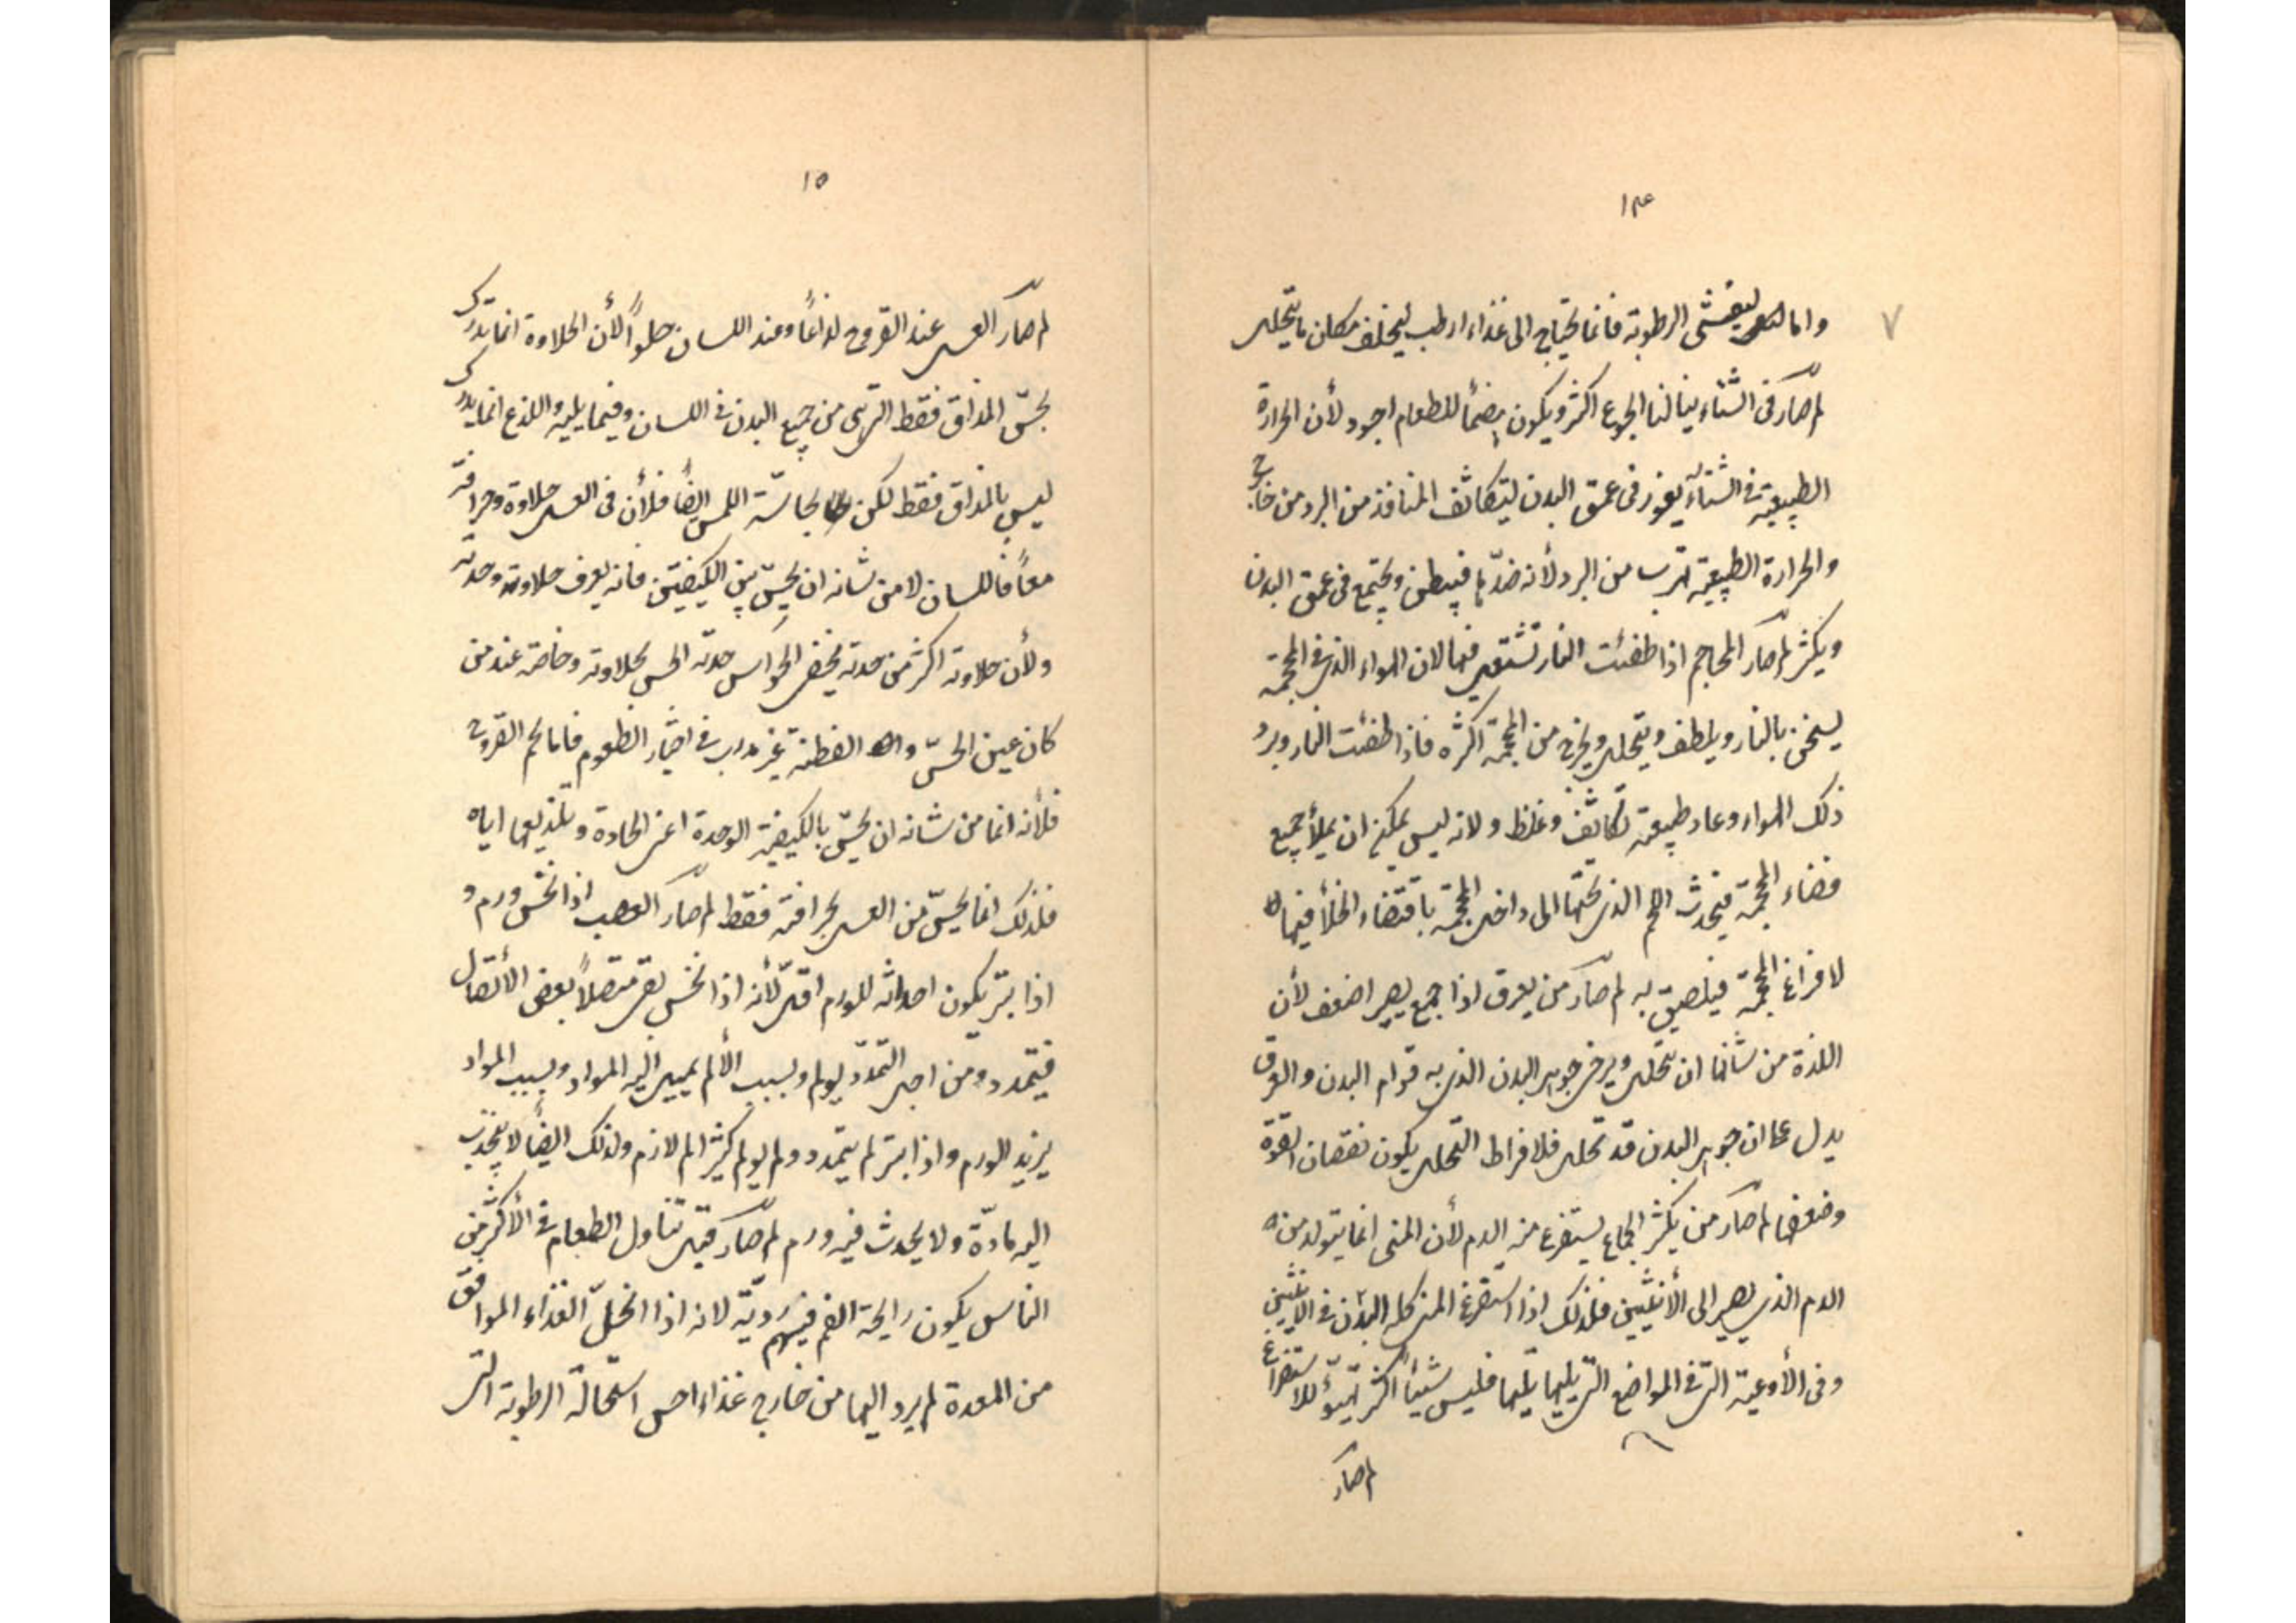 ١٤
٧
واما لتفشى الرطوبة فانما يحتاج الى غذاء ارطب ليخلف مكان ما يتحلل
لم صار فى الشتاء ينالنا الجوع اكثر ويكون هضمنا للطعام اجود لأن الحرارة
الطبيعية فى الشتاء يغور فى عمق البدن ليتكاثف المنافذ من البرد من خارج
والحرارة الطبيعية تهرب من البرد لأنه ضدّها فيبطن ويجتمع فى عمق البدن
ويكثر لم صار المحاجم اذا طفئت النار تشتعل فيها لان الهواء الذى فى المحجمة
يسخن بالنار ويلطف ويتحلل ويخرج من المحجمة اكثره فاذا طفئت النار وبرد
ذلك الهواء وعاد طبيعته تكاثف وغلظ ولانه ليس يمكن ان يملأ جميع
فضاء المحجمة فيجذب اللحم الذى تحتها الى داخل المحجمة باقتضاء الخلأ فيها
لا فراغ المحجمة فيلصق به لم صار من يعرق اذا جمع يصير اضعف لأن
اللذة من شانها ان تحلل ويرخى جوهر البدن الذى به قوام البدن والعرق
يدل على ان جوهر البدن قد تحلل فلافراط التحلل يكون نقصان القوة
وضعفها لم صار من يكثر الجماع يستفرغ منه الدم لأن المنى انما يتولد من
الدم الذى يصير الى الأنثيين فلذلك اذا استفرغ المنى كله البدن فى الانثيين
وفى الأوعية التى فى المواضع التى يليها تليها فليس شيئاً اكثر تهيؤ للاستفراغ
لم صار
١٥
لم صار العسل عند القروح لذاعاً وعند اللسان حلواً لأن الحلاوة انما تدرك
بحسّ المذاق فقط التى هى من جميع البدن فى اللسان وفيما يليه واللذع انما يدرك
ليس بالمذاق فقط لكن بحاسّة اللمس ايضاً فلأن فى العسل حلاوة وحرافة
معاً فاللسان لا من شانه ان يحسّ بهى الكيفيتين فانه يعرف حلاوته وحدته
ولأن حلاوته اكثر من حدته يخفى الحواس حدته الحس بحلاوته وخاصة عند من
كان عين الحسّ الفطنة غير مدرب فى اختبار الطعوم فاما لحم القروح
فلأنه انما من شانه ان يحسّ بالكيفية الوحدة اعنى الحادة وتلذيعها اياه
فلذلك انما يحسّ من العسل بحرافته فقط لم صار العصب اذا نخس ورم و
اذا بتر يكون احداثه للورم اقل لأنه اذا نخس بقى متصلاً بعض الأتصال
فيتمدد ومن اجل التمدد يولم وبسبب الألم يميل اليه المواد وبسبب المواد
يزيد الورم واذا بتر لم يتمدد ولم يولم كثير الم لازم ولذلك ايضاً لا ينجذب
اليه مادّة ولا يحدث فيه ورم لم صار قبل تناول الطعام فى الأكثر من
الناس يكون رايحة الفم فيهم رديّة لانه اذا انحلّ الغذاء الموافق
من المعدة لم يرد اليها من خارج غذاء اخر استحالة الرطوبة التى